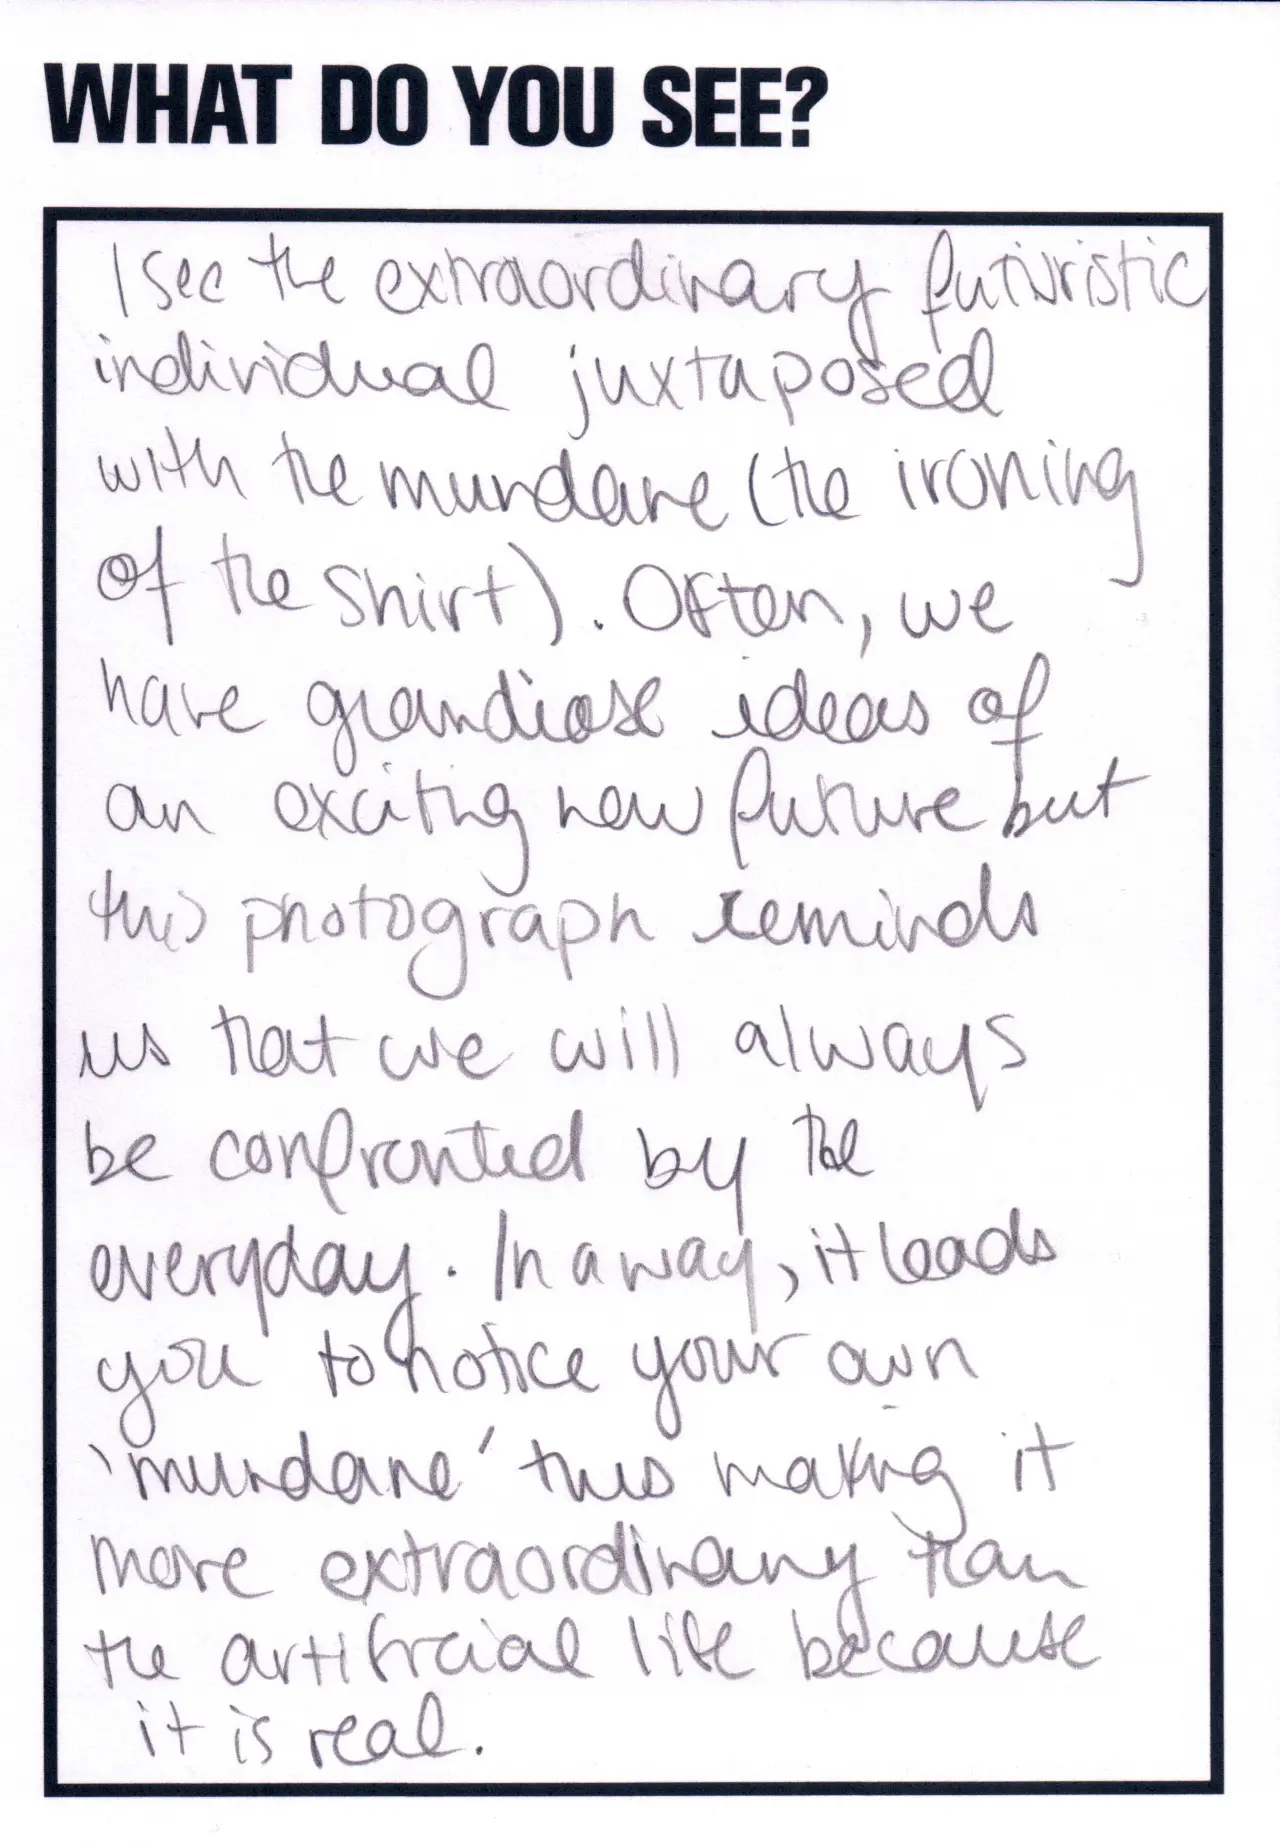 WHAT DO YOU SEE?
I see the extraordinary futuristic
individual juxtaposed
with the mundane (the ironing
of the shirt). Often, we
have grandiose ideas of
an exciting new future but
this photograph reminds
us that we will always
be confronted by the
everyday. In a way, it leads
you to notice your own
'mundane' thus making it
more extraordinary than
the artificial life because
it is real.